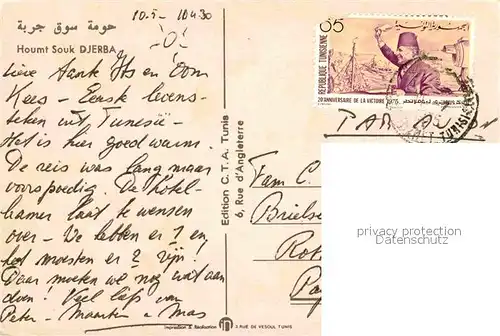 حومة سوق جربة
Houmt Souk DJERBA
10.5 - 10u30
lieve Tante en Oom
Kees - Eerste levens-
teken uit Tunesië -
Het is hier goed warm.
De reis was lang maar
voorspoedig. De hotel-
kamer laat te wensen
over - We hebben er 1 en
het moesten er 2 zijn!
Daar moeten we nog wat aan
doen! Veel liefs van
Peter - Maarten
Edition C.T.A. Tunis
6, Rue d'Angleterre
65
الجمهورية التونسية
REPUBLIQUE TUNISIENNE
20 ANNIVERSAIRE DE LA VICTOIRE 1975
PAR AVION
Fam C.
Brielse
Rot
privacy protection
Datenschutz
Impression & Réalisation
3 RUE DE VESOUL TUNIS